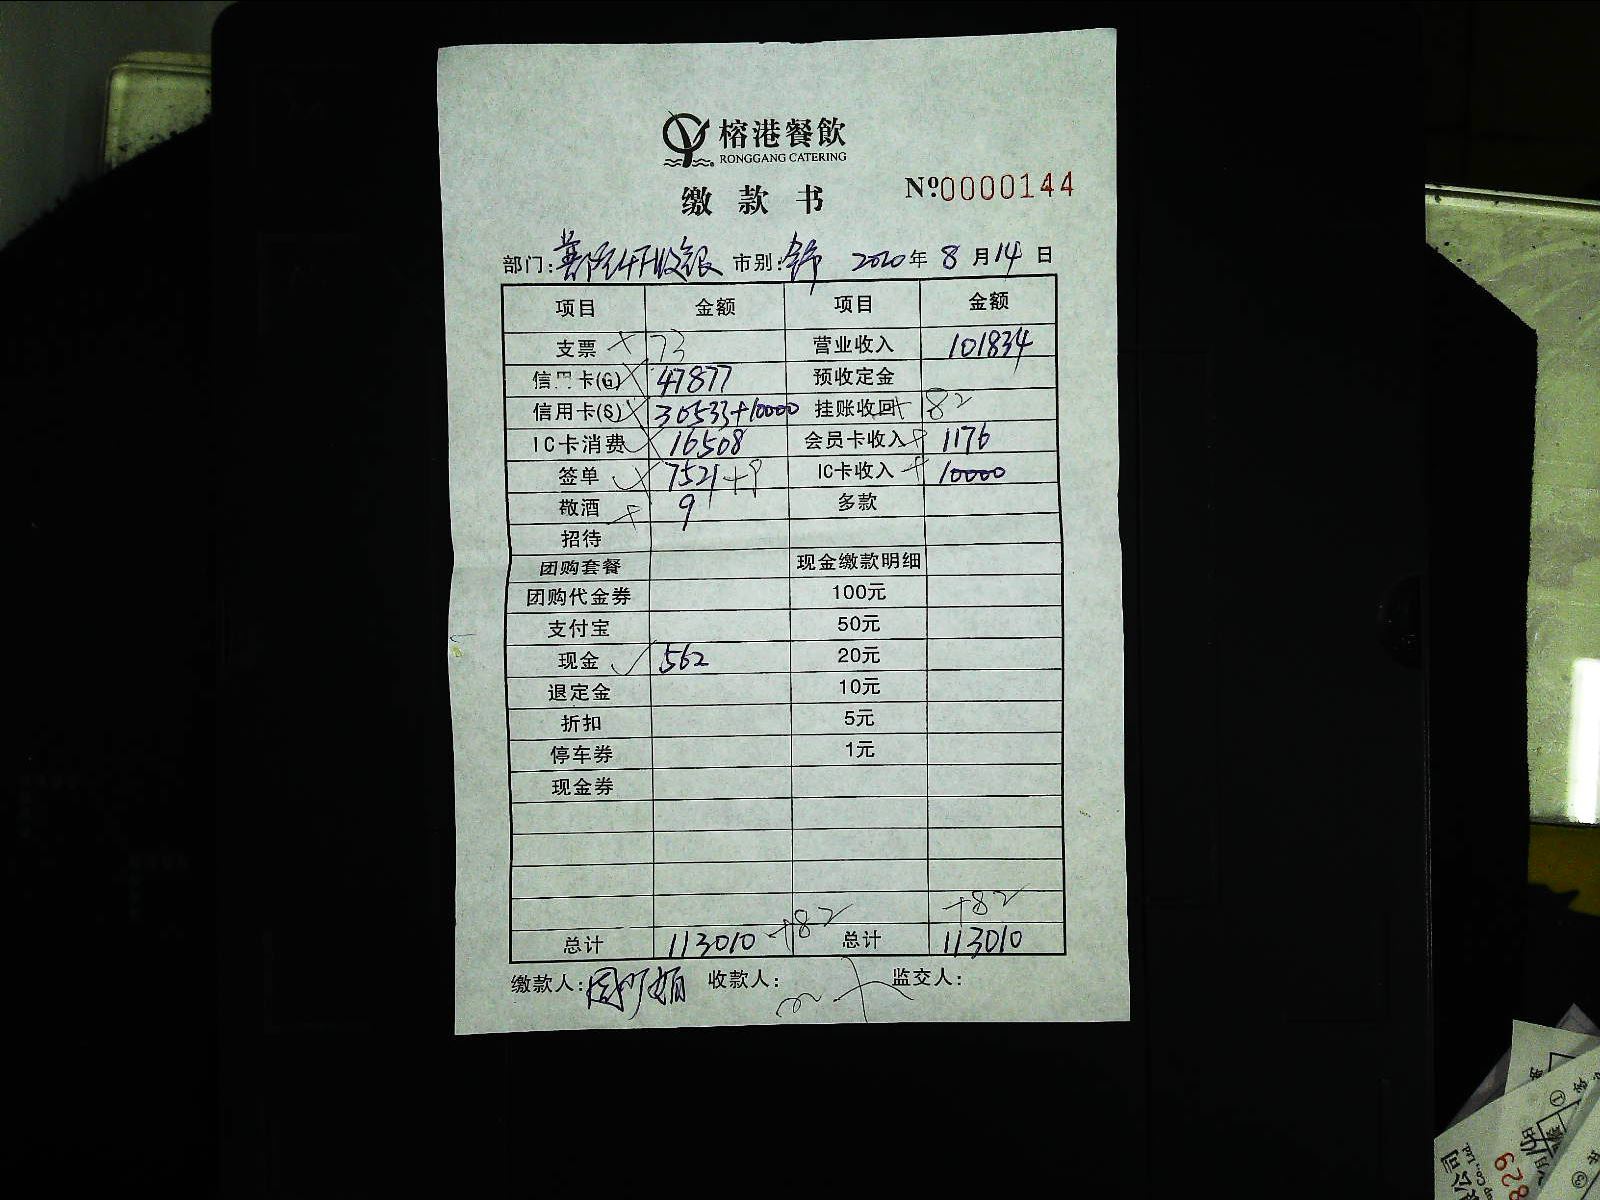 榕港餐飲
RONGGANG CATERING
缴款书
№0000144
部门: 市别: 2020年8月14日
项目 金额 项目 金额
支票 73 营业收入 101834
信用卡(G) 47877 预收定金
信用卡(S) 30533+10000 挂账收回 + 82
IC卡消费 16508 会员卡收入 + 1176
签单 7521 +9 IC卡收入 + 10000
敬酒 9 多款
招待
团购套餐 现金缴款明细
团购代金券 100元
支付宝 50元
现金 562 20元
退定金 10元
折扣 5元
停车券 1元
现金券
+82
总计 113010 +82 总计 113010
缴款人: 收款人: 监交人:
公司
829